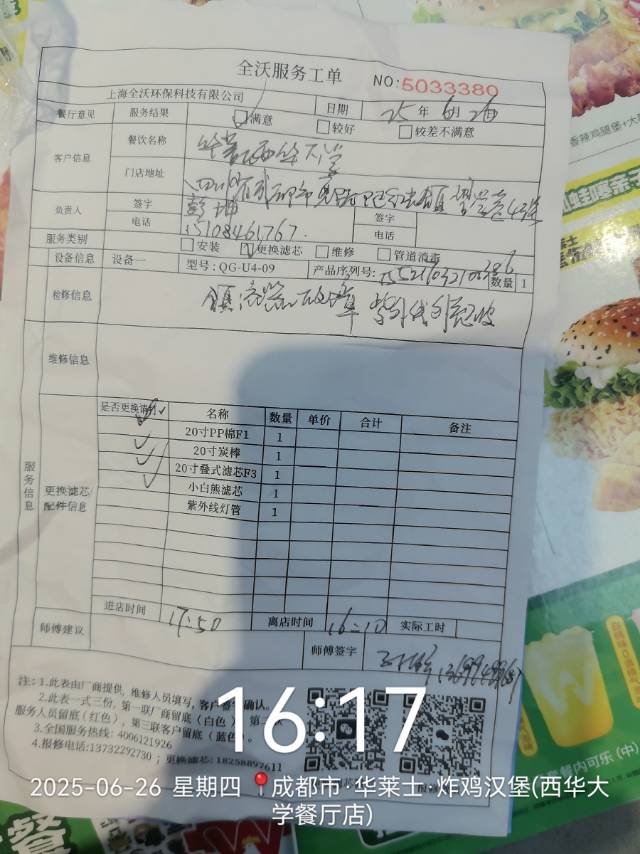 全沃服务工单 NO:5033380
上海全沃环保科技有限公司
餐厅意见 服务结果 满意 较好 较差不满意 日期 25年6月26
客户信息 餐饮名称 华莱士西华大学
门店地址 四川省成都市
负责人 签字 彭坤 签字
电话 15108461767. 电话
服务类别 安装 更换滤芯 维修 管道消毒
设备信息 设备一 型号:QG-U4-09 产品序列号: 数量 1
检修信息 故障 紫外线
维修信息
服务信息
更换滤芯/配件信息
是否更换请打√ 名称 数量 单价 合计 备注
√ 20寸PP棉F1 1
√ 20寸炭棒 1
√ 20寸叠式滤芯F3 1
小白熊滤芯 1
紫外线灯管 1
师傅建议 进店时间 17:50 离店时间 16:10 实际工时
师傅签字
注:1.此表由厂商提供,维修人员填写,客户
确认。
2.此表一式三份,第一联厂商留底(白色)第二
服务人员留底(红色),第三联客户留底(蓝色)。
3.全国服务热线:4006121926
4.报修电话:13732292730;更换滤芯:18258892611
16:17
2025-06-26 星期四 成都市·华莱士·炸鸡汉堡(西华大
学餐厅店)
香辣鸡腿堡+大
餐内可乐(中)